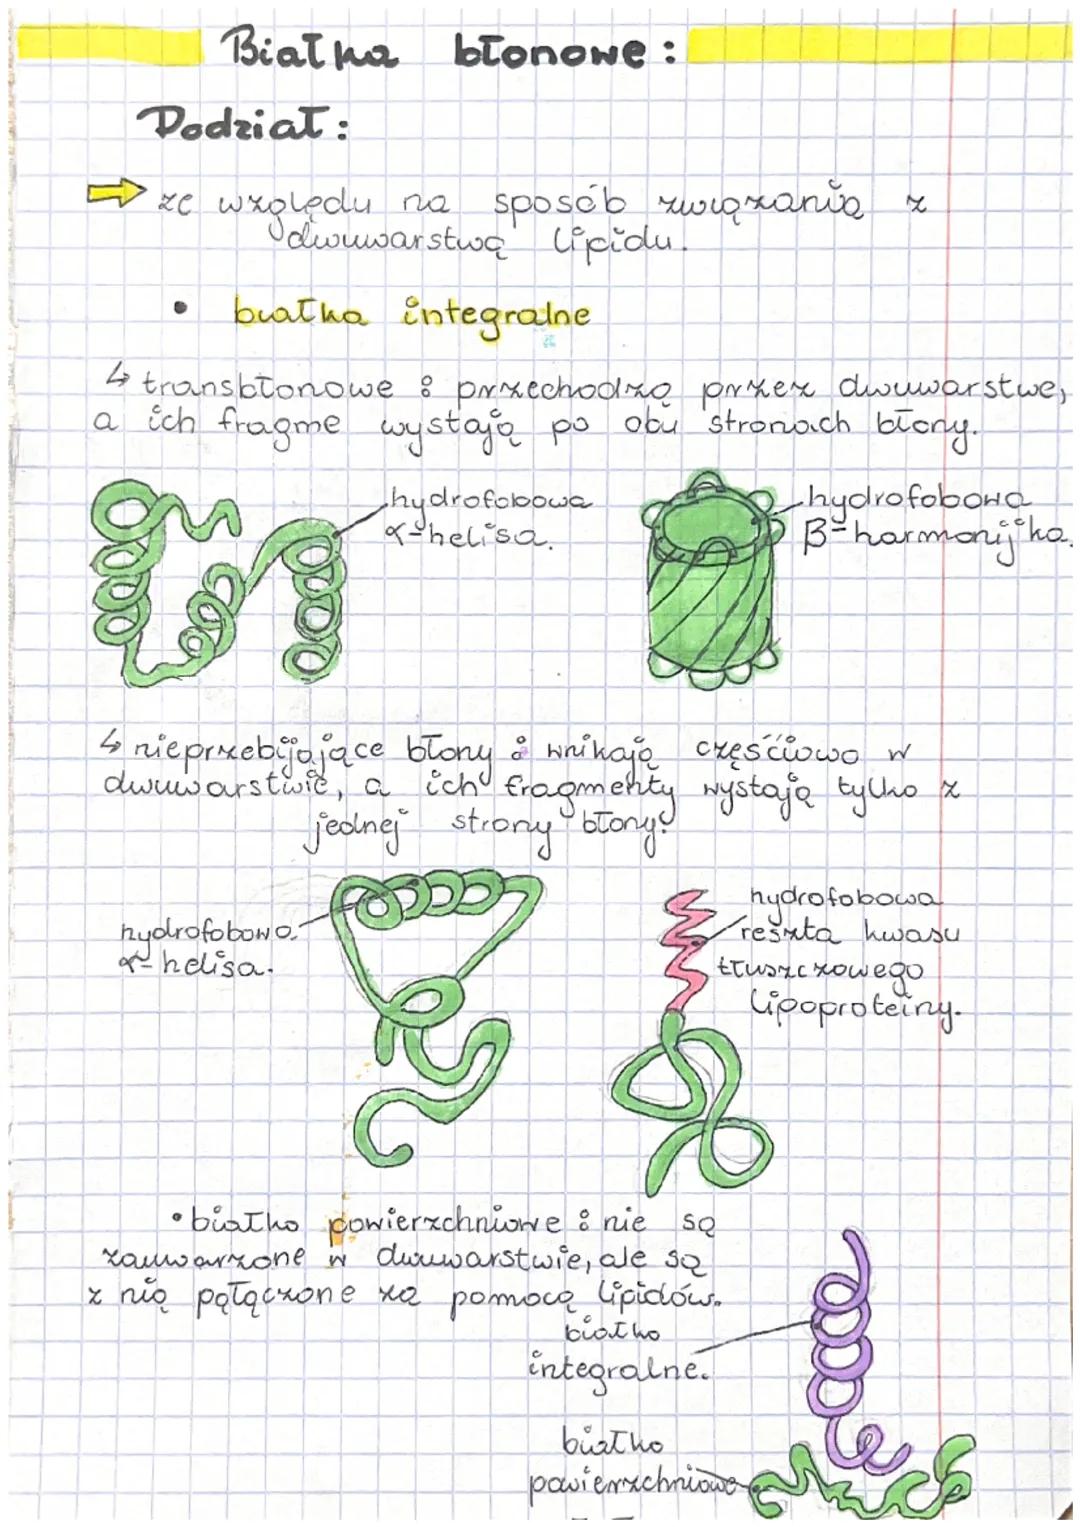 Białka błonowe:
Podział:
ze względu na sposób związania z
dwuwarstwą lipidu.
• białka integralne
↳ transbłonowe: przechodzą przez dwuwarstwe,
a ich fragme wystają po obu stronach błony.
hydrofobowa
α-helisa.
hydrofobowa
β-harmonijka.
↳ nieprzebijające błony: wnikają częściowo w
dwuwarstwie, a ich fragmenty wystają tylko z
jednej strony błony.
hydrofobowa
α-helisa.
hydrofobowa
reszta kwasu
tłuszczowego
lipoproteiny.
• białko powierzchniowe: nie są
zauwarzone w dwuwarstwie, ale są
z nią połączone za pomocą lipidów.
białko
integralne.
białko
powierzchniowe